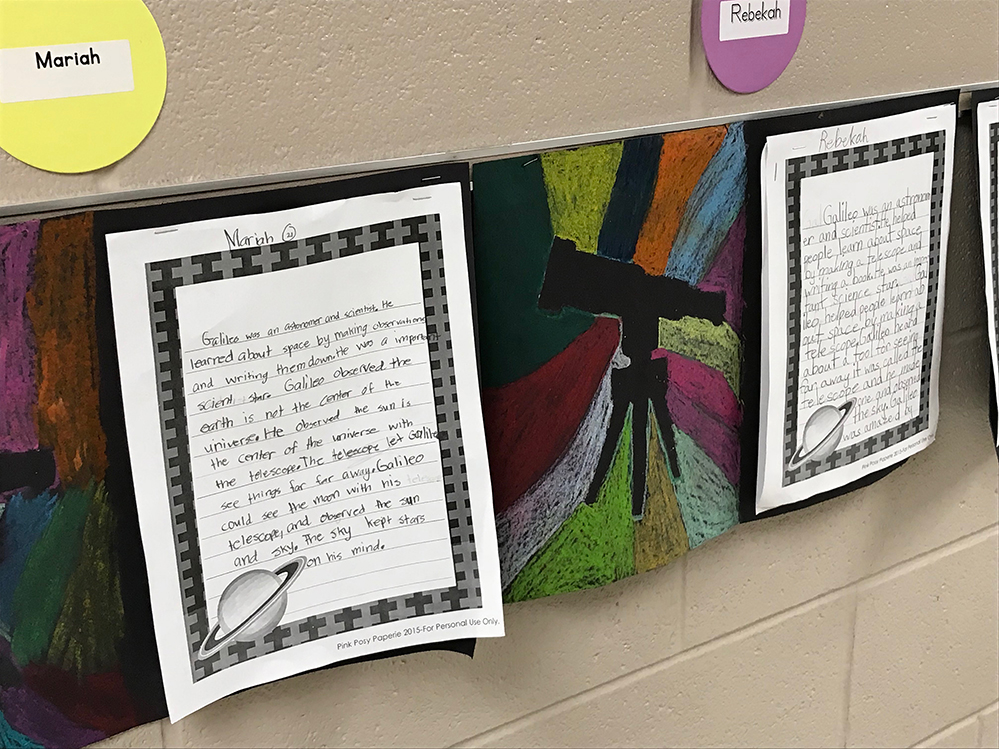 Mariah
Rebekah
Mariah 23
Galileo was an astronomer and scientist. He
learned about space by making observations
and writing them down. He was a important
scient star. Galileo observed the
earth is not the center of the
universe. He observed the sun is
the center of the universe with
the telescope. The telescope let Galileo
see things far far away. Galileo
could see the moon with his
telescope, and observed the sun
and sky. The sky kept stars
on his mind.
Pink Posy Paperie 2015-For Personal Use Only.
Rebekah
Galileo was an astronom
er and scientist. He helped
people learn about space
by making a telescope and
writing a book. He was an impor
tant science star.
leo helped people learn ab
out space by making it
telescope. Galileo heard
about a tool for seeing
far away it was called the
telescope and he made
one and
the sky. Galileo
was amazed by
Pink Posy Paperie 2015-For Personal Use Only.